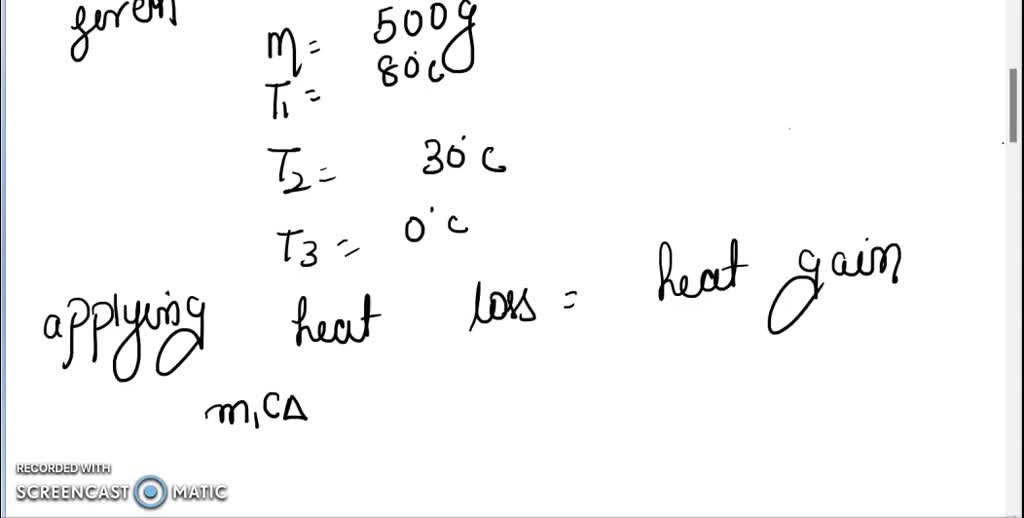 given
m = 500g
T1 = 80°c
T2 = 30°c
T3 = 0°c
applying heat loss = heat gain
m, C∆
RECORDED WITH
SCREENCAST MATIC